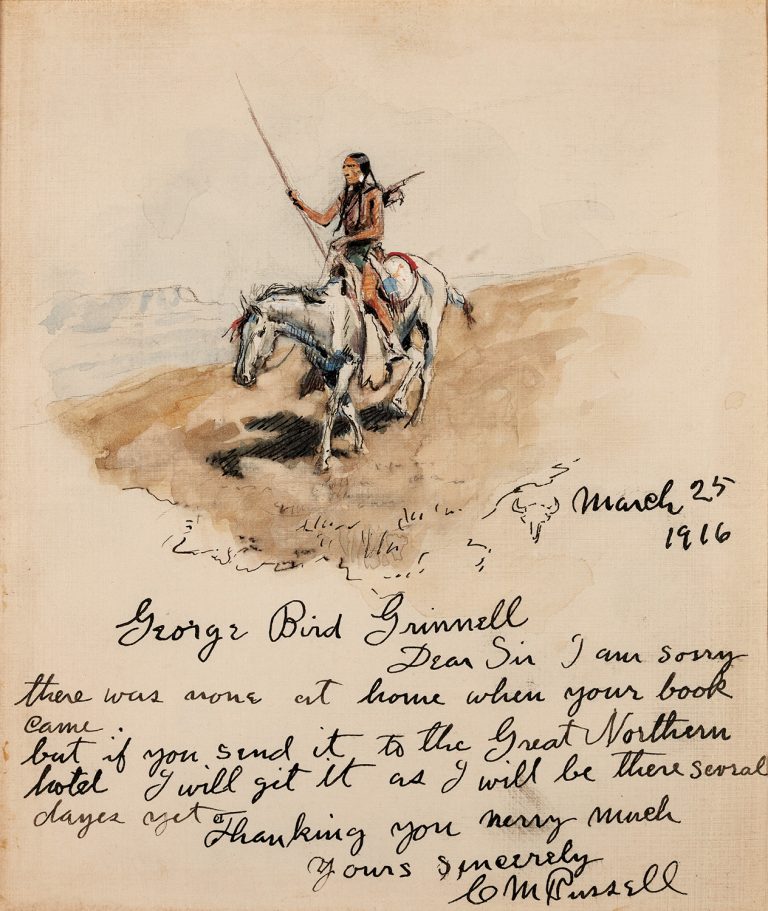 March 25
1916
George Bird Grinnell
Dear Sir I am sorry
there was none at home when your book
came.
but if you send it to the Great Northern
hotel I will get it as I will be there sevral
dayes yet
Thanking you verry much
Yours sincerely
C M Russell